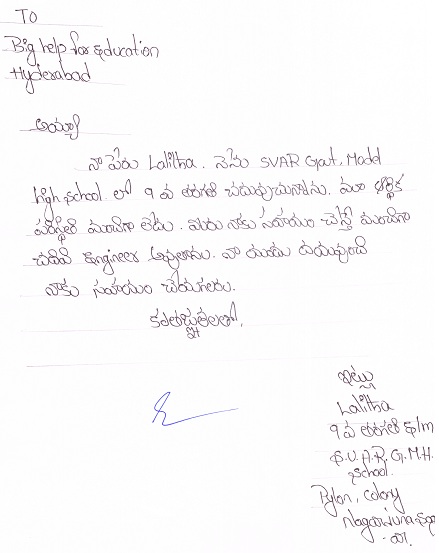 TO
Big help for Education
Hyderabad
అయ్యా
నా పేరు Lalitha. నేను SVAR Govt. Model
high school లో 9 వ తరగతి చదువుచున్నాను. మా ఆర్థిక
పరిస్థితి మంచిగా లేదు. మీరు నాకు సహాయం చేస్తే మంచిగా
చదివి Engineer అవుతాను. నా యందు దయవుంచి
నాకు సహాయం చేయగలరు.
కృతజ్ఞతలతో,
ఇట్లు
Lalitha
9 వ తరగతి E/m
S.V.A.R.G.M.H.
School.
Pylon, colony